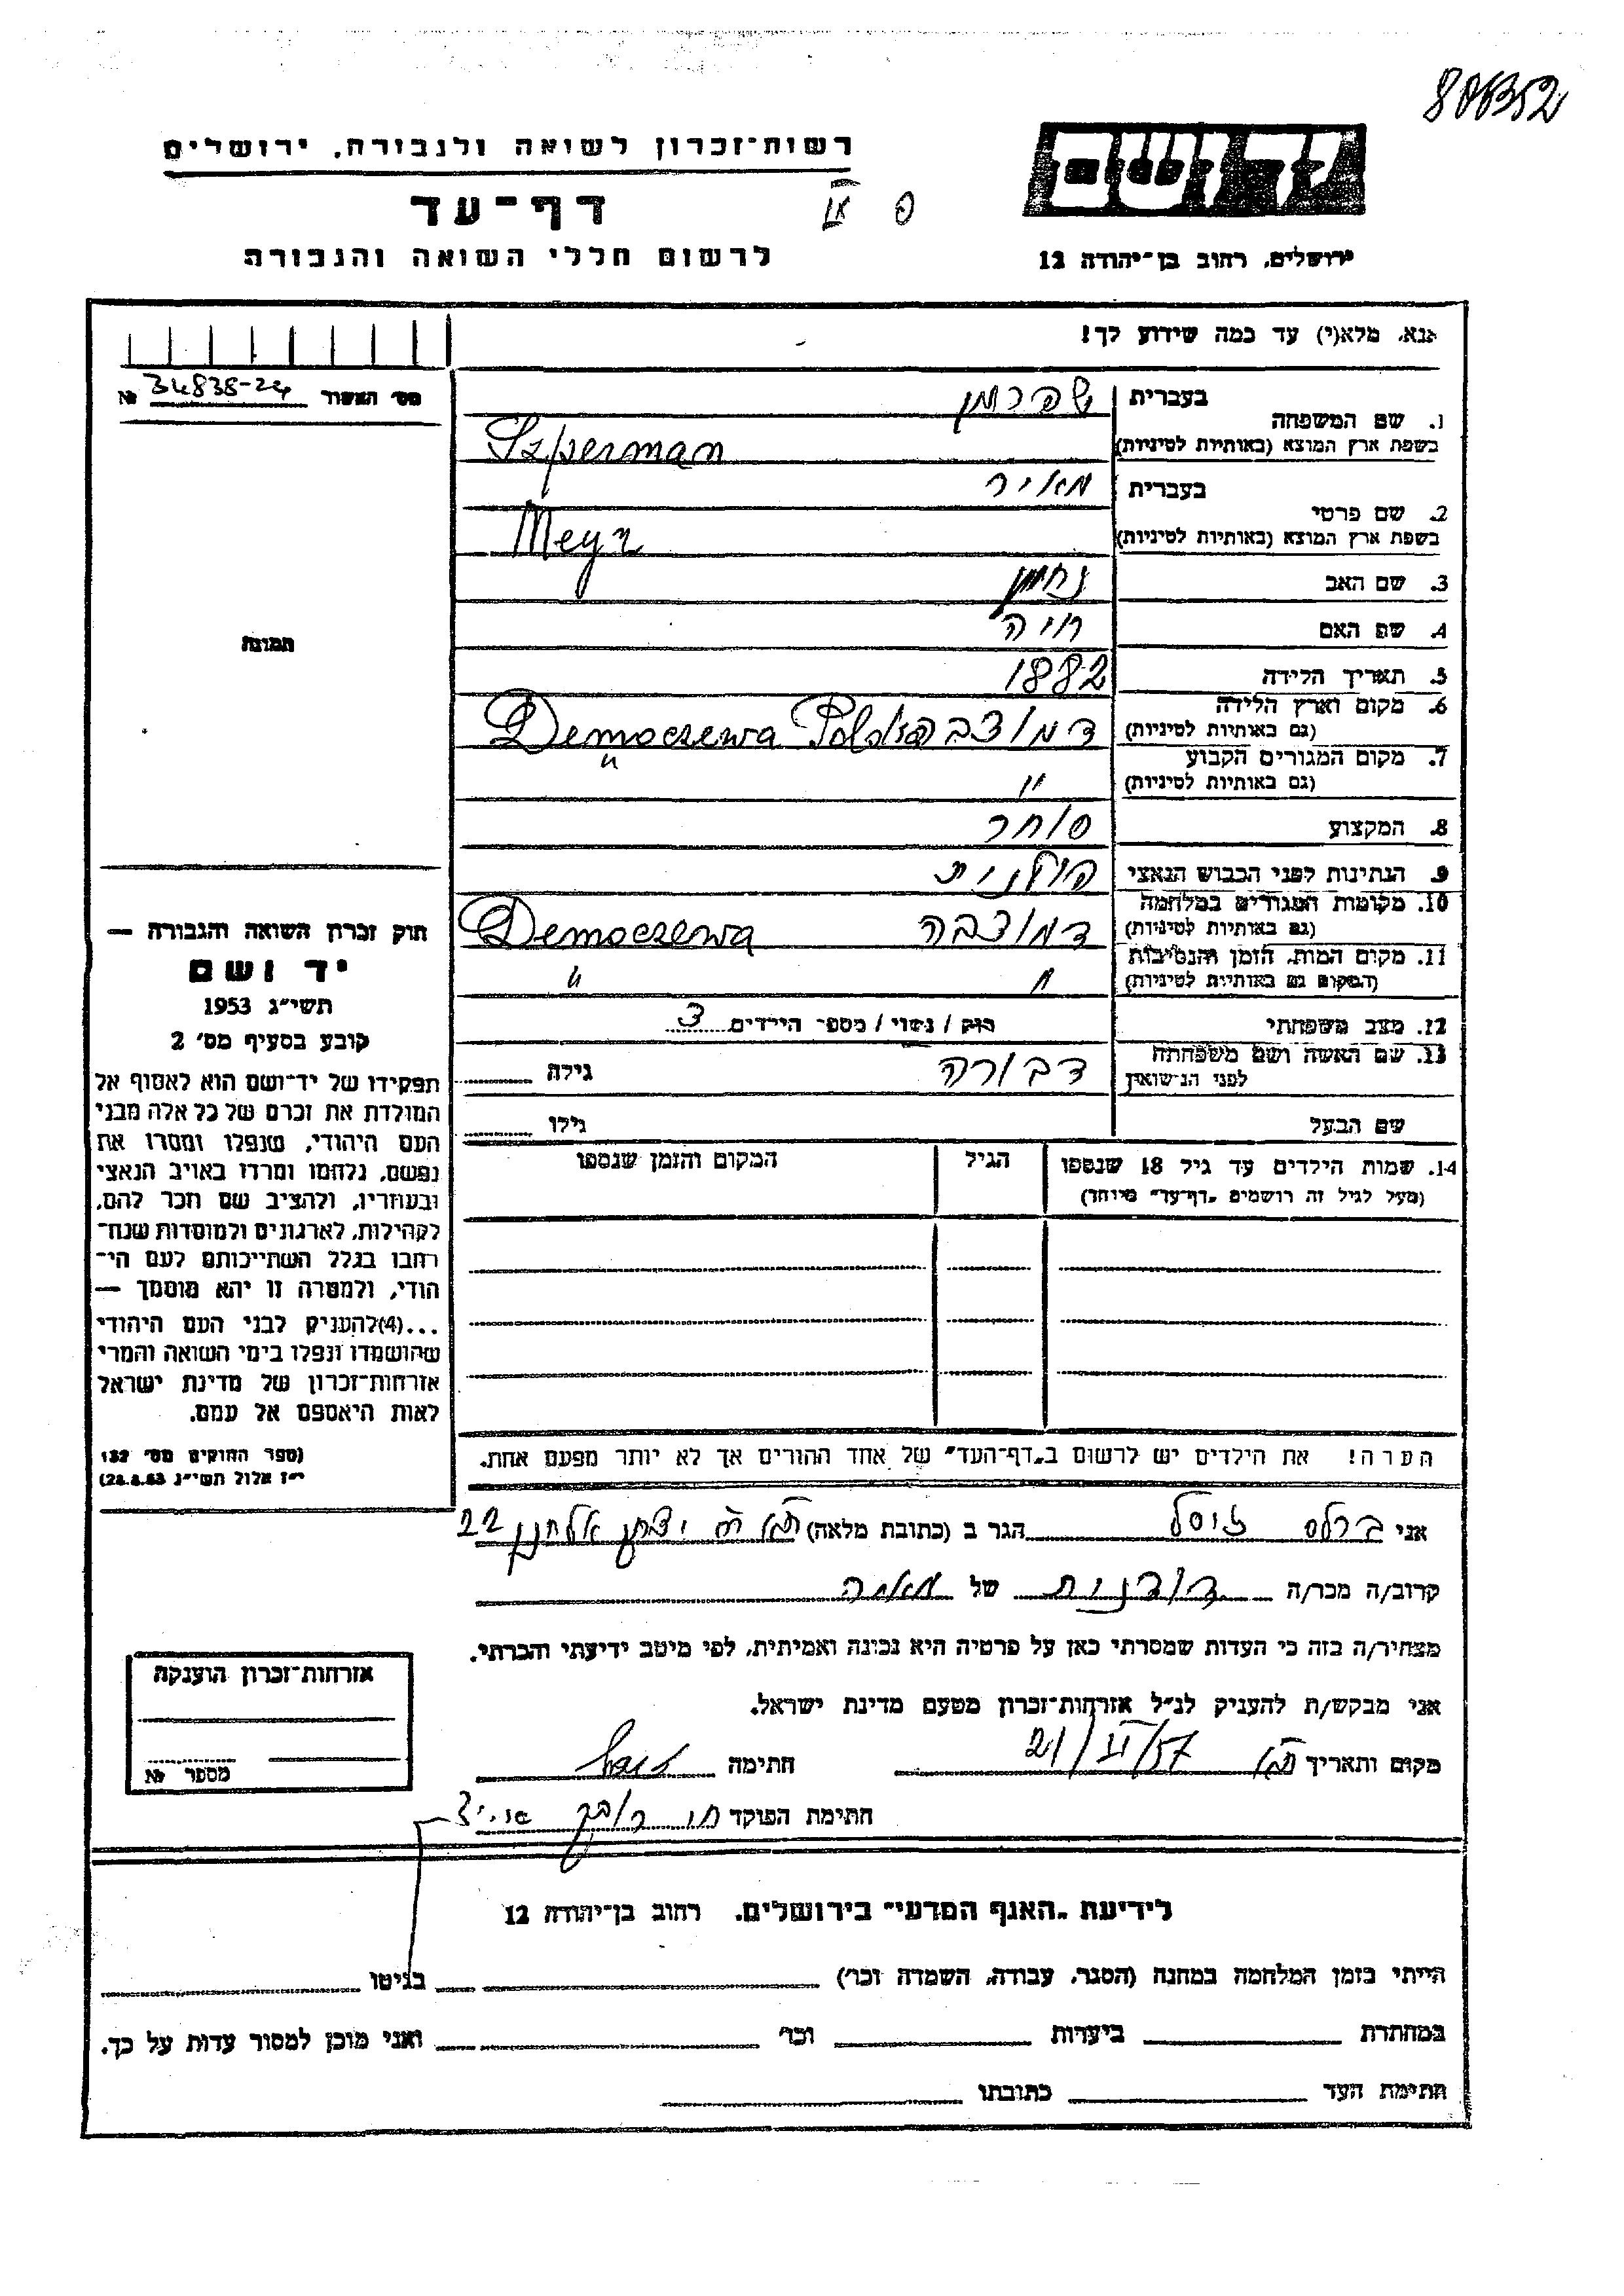 806352
רשות־זכרון לשואה ולגבורה, ירושלים
דף־עד
לרשום חללי השואה והגבורה
ידושם
ירושלים, רחוב בן־יהודה 12
אנא, מלא(י) עד כמה שידוע לך!
מס׳ האשור 34838-24 №
תמונה
1. שם המשפחה בעברית שפרמן
בשפת ארץ המוצא (באותיות לטיניות) Szperman
2. שם פרטי בעברית מאיר
בשפת ארץ המוצא (באותיות לטיניות) Meyr
3. שם האב נחמן
4. שם האם חיה
5. תאריך הלידה 1882
6. מקום וארץ הלידה
(גם באותיות לטיניות) Democzewa Polska
7. מקום המגורים הקבוע
(גם באותיות לטיניות) " "
8. המקצוע סוחר
9. הנתינות לפני הכבוש הנאצי פולנית
10. מקומות המגורים במלחמה
(גם באותיות לטיניות) דמוצבה Democzewa
11. מקום המות, הזמן והנסיבות
(המקום גם באותיות לטיניות) " "
12. מצב משפחתי רווק / נשוי / מספר הילדים 3
13. שם האשה ושם משפחתה
לפני הנישואין דבורה גילה
שם הבעל גילו
14. שמות הילדים עד גיל 18 שנספו הגיל המקום והזמן שנספו
(מעל לגיל זה רושמים „דף־עד״ מיוחד)
הערה! את הילדים יש לרשום ב„דף־העד״ של אחד ההורים אך לא יותר מפעם אחת.
חוק זכרון השואה והגבורה —
יד ושם
תשי״ג 1953
קובע בסעיף מס׳ 2
תפקידו של יד־ושם הוא לאסוף אל
המולדת את זכרם של כל אלה מבני
העם היהודי, שנפלו ומסרו את
נפשם, נלחמו ומרדו באויב הנאצי
ובעוזריו, ולהציב שם וזכר להם,
לקהילות, לארגונים ולמוסדות שנח־
רבו בגלל השתייכותם לעם הי־
הודי, ולמטרה זו יהא מוסמך —
...(4)להעניק לבני העם היהודי
שהושמדו ונפלו בימי השואה והמרי
אזרחות־זכרון של מדינת ישראל
לאות היאספם אל עמם.
(ספר החוקים מס׳ 132
י״ז אלול תשי״ג 28.8.53)
אני ברלס זיסל הגר ב (כתובת מלאה) יצחק אלחנן 22
קרוב/ה מכר/ה דודנית של
מצהיר/ה בזה כי העדות שמסרתי כאן על פרטיה היא נכונה ואמיתית, לפי מיטב ידיעתי והכרתי.
אני מבקש/ת להעניק לנ״ל אזרחות־זכרון מטעם מדינת ישראל.
מקום ותאריך 21/VI/57 חתימה
חתימת הפוקד
אזרחות־זכרון הוענקה
מספר №
לידיעת „האגף המדעי״ בירושלים, רחוב בן־יהודה 12
הייתי בזמן המלחמה במחנה (הסגר, עבודה, השמדה וכו׳) בגיטו
במחתרת ביערות וכו׳ ואני מוכן למסור עדות על כך.
חתימת העד כתובתו